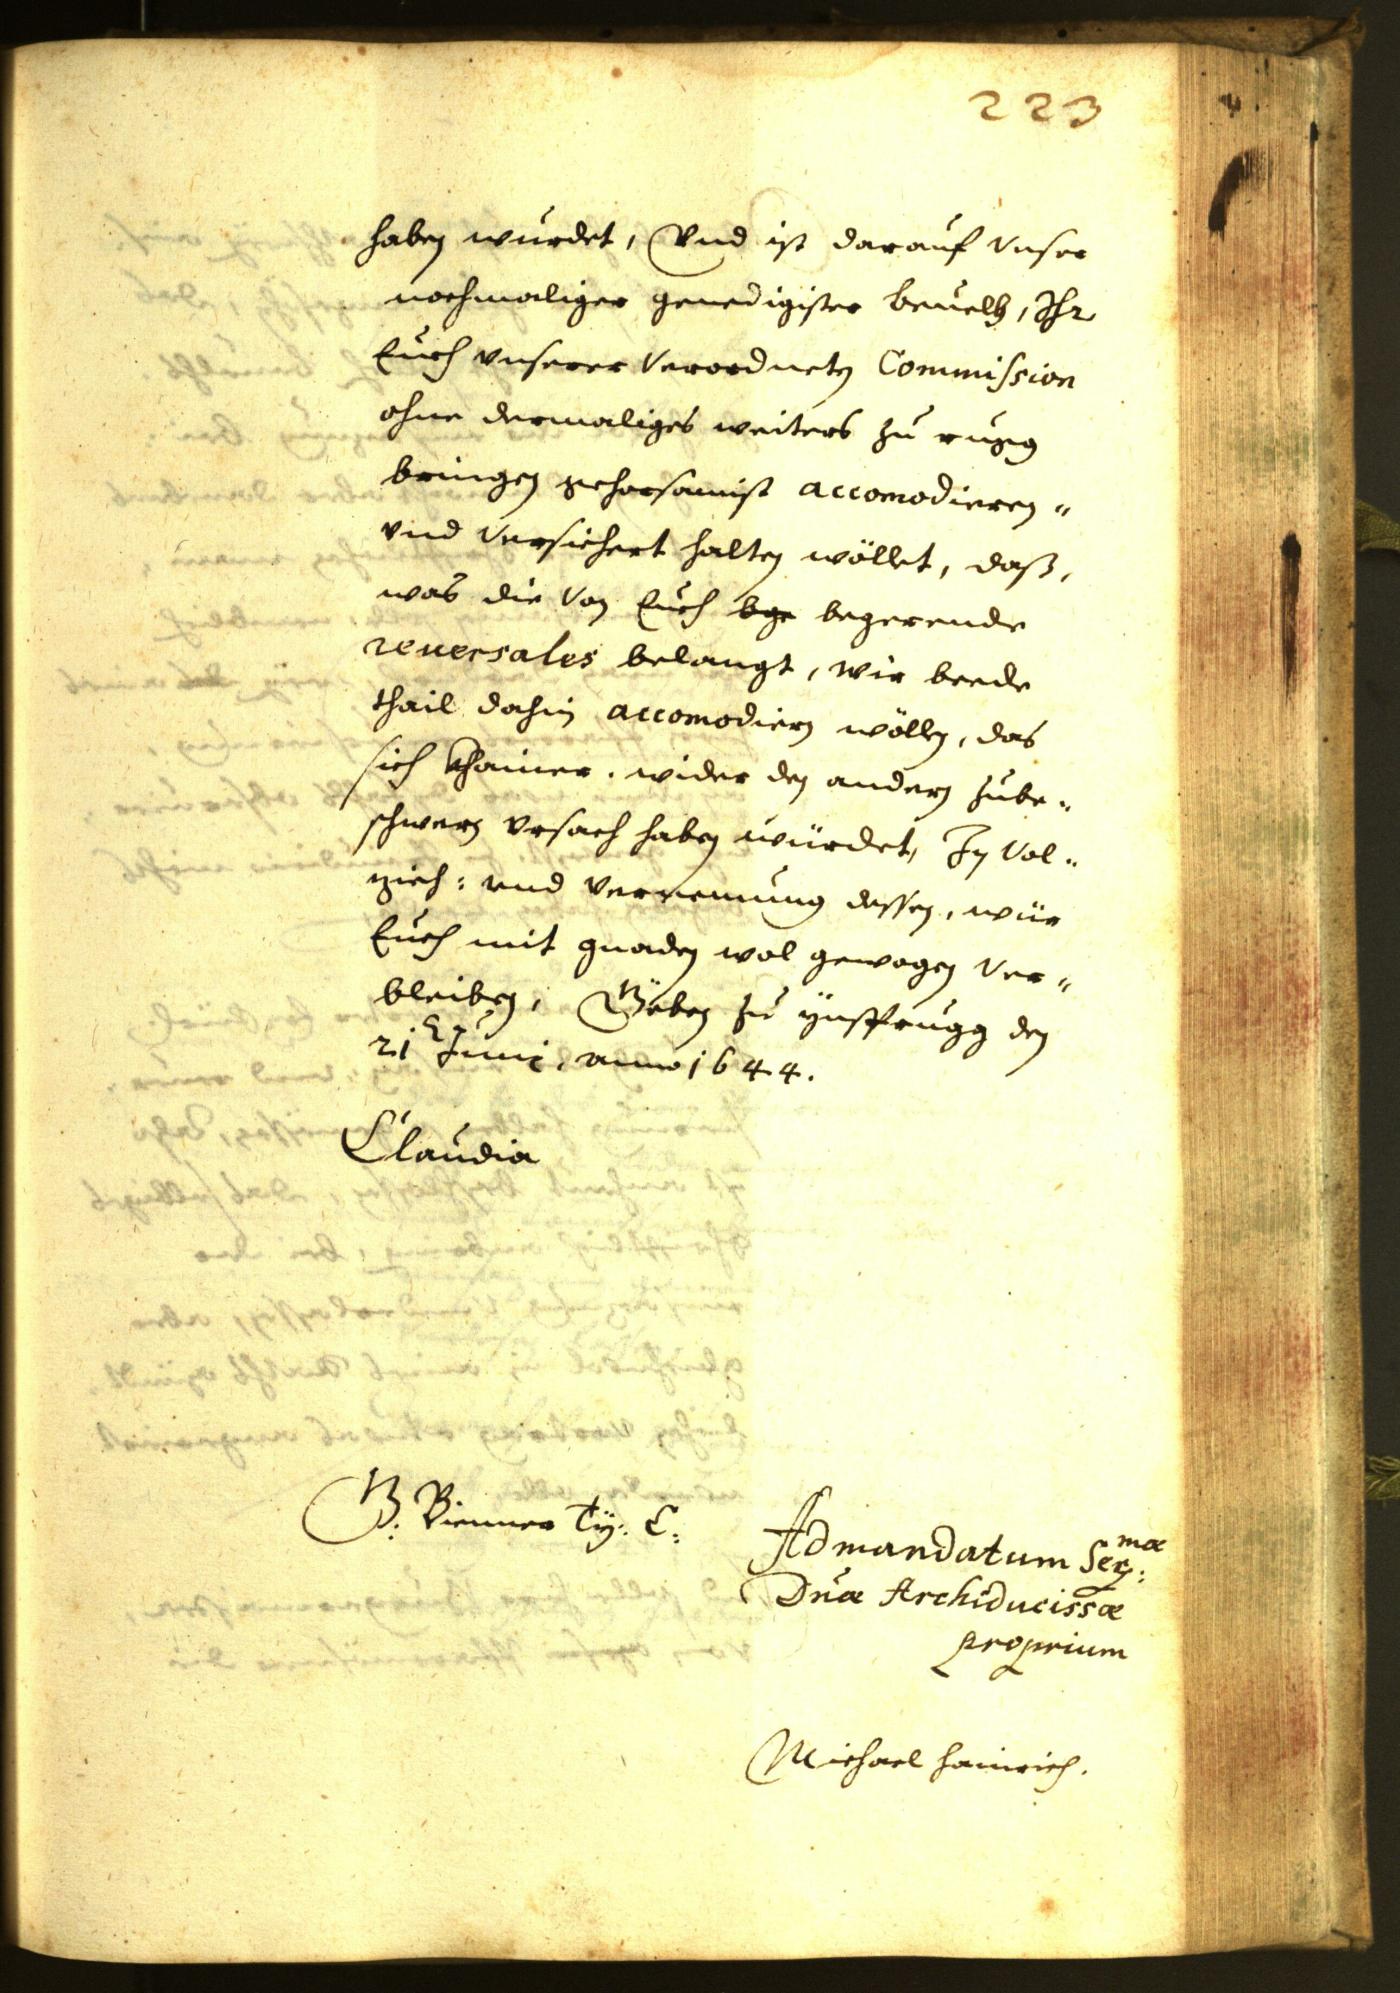 223
haben wurdet, Vnd ist darauf vnser
nochmaliger genedigister beuelh, Ihr
Euch vnserer verordneten Commission
ohne dermaliges weiters zu rugg
bringen gehorsamist accomodieren"
vnd versichert halten wöllet, daß,
was die von Euch bge begerende
reuersales belangt, wir beede
thail dahin accomodiern wöllen, das
sich khainer, wider den andern zube"
schwern vrsach haben würdet, In vol"
zieh: und vernemung dessen, wür
Euch mit gnaden wol gewogen ver"
bleiben, Göben zu ÿnsprugg den
21 Junij, anno 1644.
Claudia
B. Bienner Tÿ: C:
Ad mandatum Ser:mæ
Dnæ Archiducissæ
proprium
Michael hainrich.